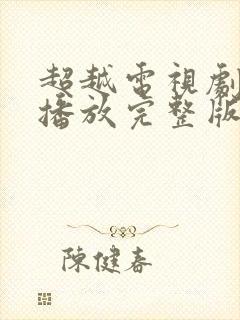 超越電視劇
播放完整版
陳健春